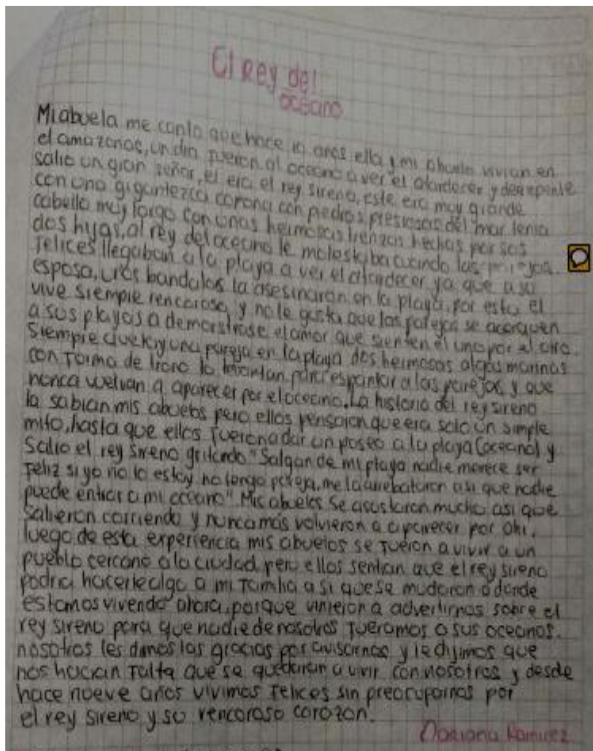 El Rey del
oceano
Mi abuela me conto que hace 10 años ella y mi abuelo vivian en
el amazonas, un dia fueron al oceano a ver el atardecer y de repente
salio un gran señor, el era el rey sireno, este era muy grande
con una gigantezca corona con piedras presiosas del mar tenia
cabello muy largo con unas hermosas trenzas hechas por sus
dos hijas, al rey del oceano le molestaba cuando las parejas
felices llegaban a la playa a ver el atardecer ya que a su
esposa, unos bandalos la asesinaron en la playa, por esto el
vive siempre rencoroso, y no le gusta que las parejas se acerquen
a sus playas a demostrase el amor que sienten el uno por el otro.
Siempre que hay una pareja en la playa dos hermosas algas marinas
con forma de trono lo levantan para espantar a las parejas y que
nunca vuelvan a aparecer por el oceano. La historia del rey sireno
la sabian mis abuelos pero ellos pensaban que era solo un simple
mito, hasta que ellos fueron a dar un paseo a la playa (oceano) y
Salio el rey sireno gritando "Salgan de mi playa nadie merece ser
feliz si yo no lo estoy no tengo pareja, me la arrebataron asi que nadie
puede entrar a mi oceano". Mis abuelos se asustaron mucho asi que
salieron corriendo y nunca más volvieron a aparecer por ahi.
luego de esta experiencia mis abuelos se fueron a vivir a un
pueblo cercano a la ciudad, pero ellos sentian que el rey sireno
podria hacerle algo a mi familia a si que se mudaron a donde
estamos viviendo ahora, porque vinieron a advertirnos sobre el
rey sireno para que nadie de nosotros fueramos a sus oceanos.
nosotros les damos las gracias por avisarnos y le dijimos que
nos hacian falta que se quedaran a vivir con nosotros y desde
hace nueve años vivimos felices sin preocuparnos por
el rey sireno y su rencoroso corazon.
Ramirez